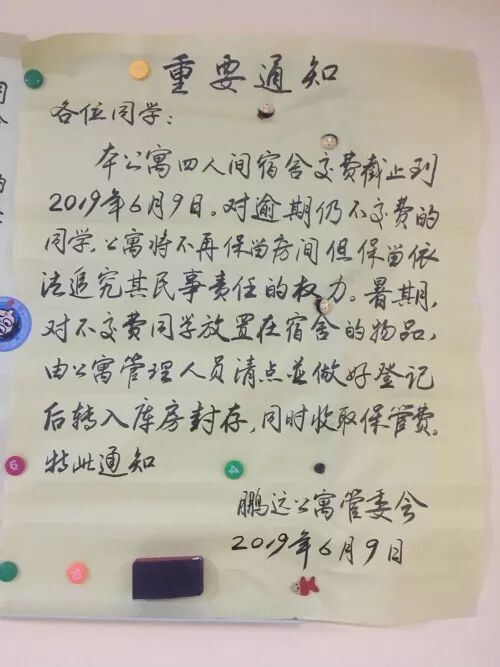 重要通知
各位同学:
本公寓四人间宿舍交费截止到
2019年6月9日。对逾期仍不交费的
同学,公寓将不再保留房间但保留依
法追究其民事责任的权力。暑期,
对不交费同学放置在宿舍的物品,
由公寓管理人员清点並做好登记
后转入库房封存,同时收取保管费。
特此通知
鹏远公寓管委会
2019年6月9日
9
4
10